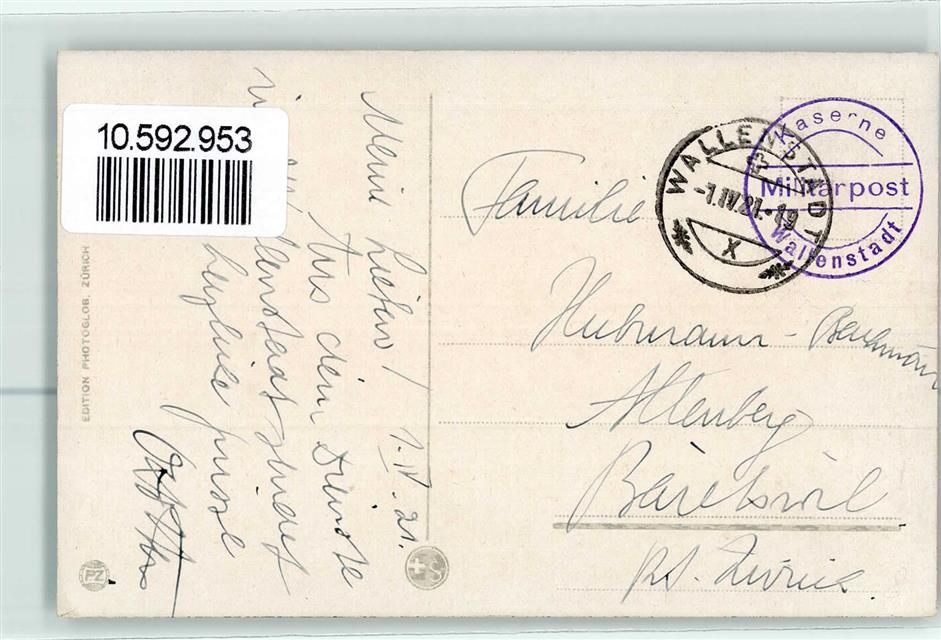 10.592.953
EDITION PHOTOGLOB, ZÜRICH
PZ
Meine Lieben!
1. IV. 21.
Aus dem Dienste
in
sendet
herzliche Grüsse
WALLENSTADT
-1.IV.21.-19
X
Kaserne
Militärpost
Wallenstadt
Familie
Hubmann-
Altenberg
Bäretswil
Kt. Zürich.